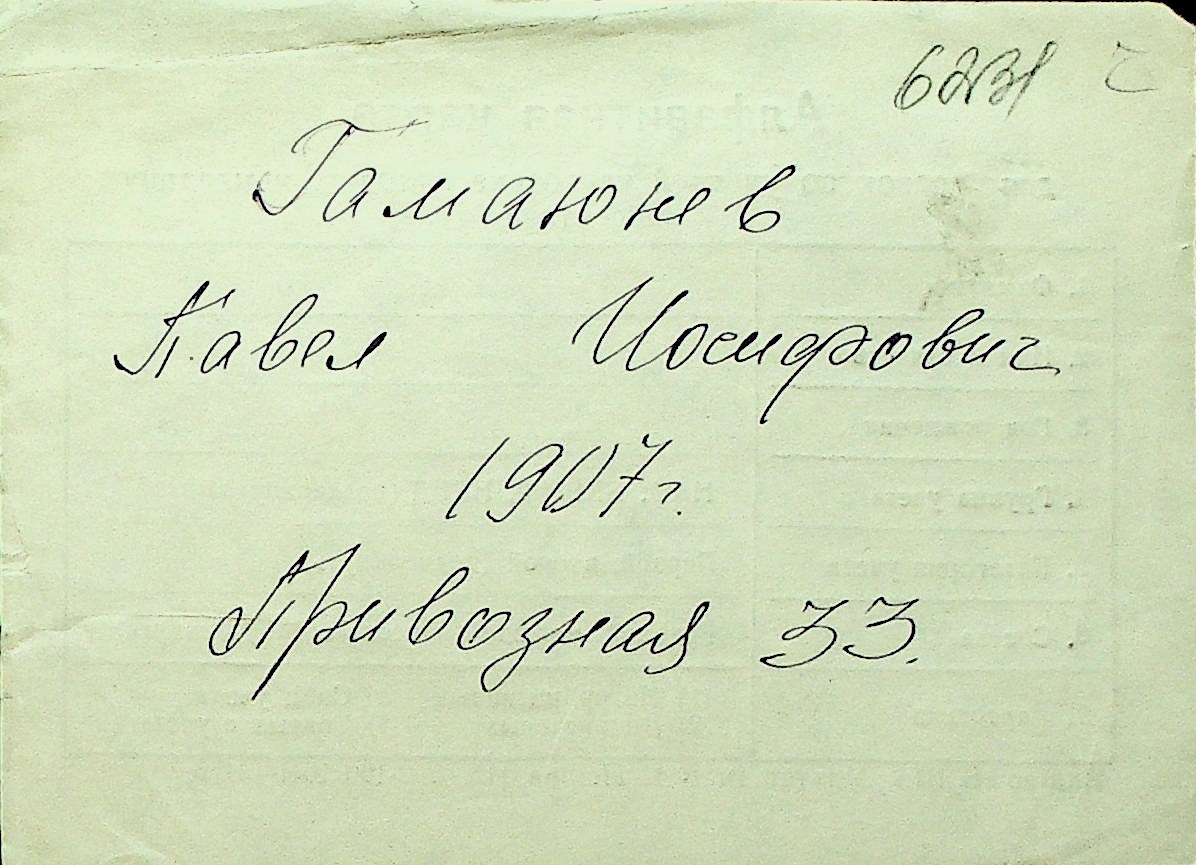 6231
Гамаюнев
Павел Иосифович
1907 г.
Привозная 33.